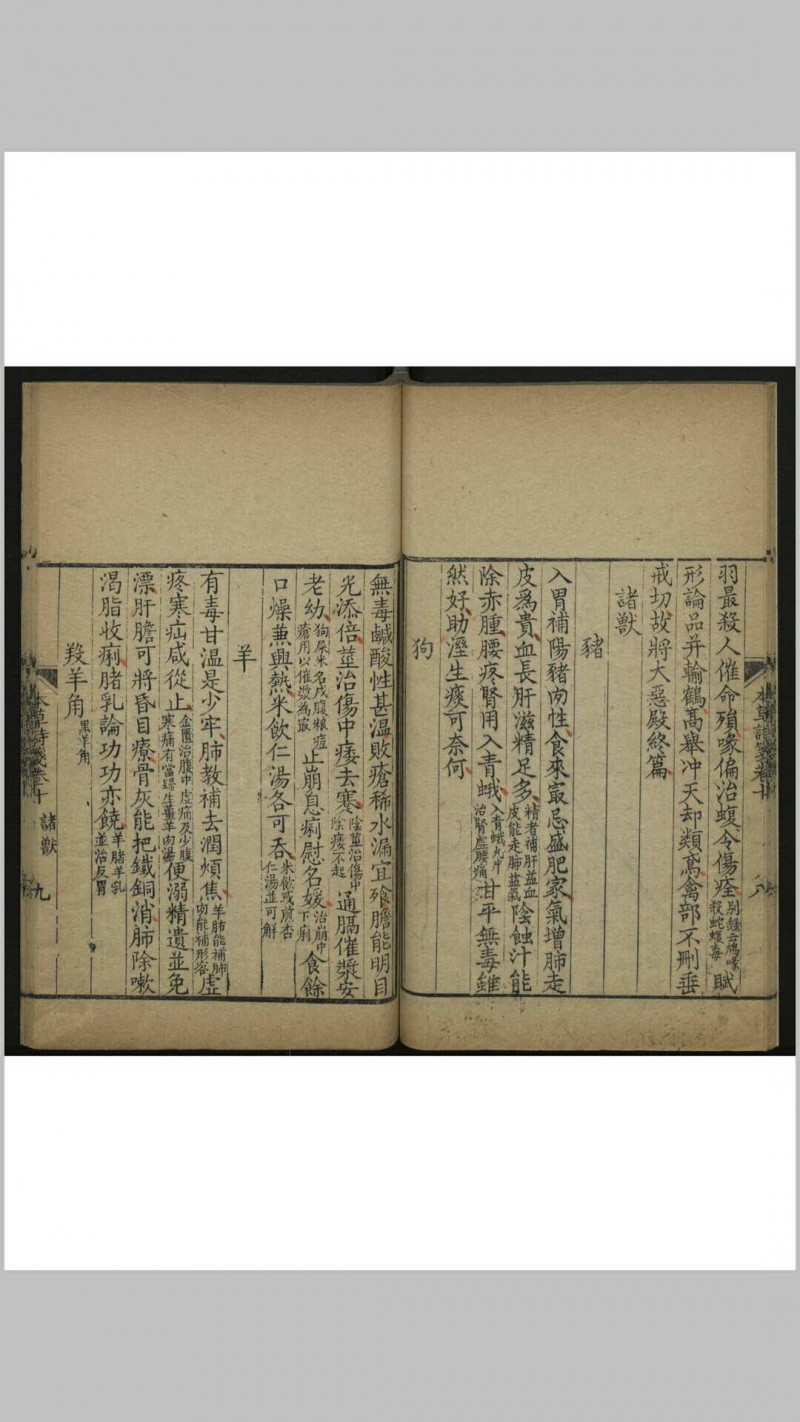 羽最殺人催命殞喙偏治蝮令傷痊別錄云鴆喙殺蛇蝮毒賦
形論品并輪鶴高舉冲天却類鳶禽部不刪垂
戒切故將大惡殿終篇
諸獸
豬
入胃補陽豬肉性食來最忌盛肥家氣增肺走
皮爲貴血長肝滋精足多精者補肝益血皮能走肺益氣陰蝕汁能
除赤腫腰疼腎用入青蛾入青蛾丸片治腎虛腰痛甘平無毒雖
然好助溼生痰可奈何
狗
本草詩箋卷十
八
無毒鹹酸性甚溫敗瘡稀水漏宜飱膽能明目
光添倍莖治傷中痿去寒陰莖治傷中陰痿不起通膈催漿安
老幼狗屎米名戌腹粮痘瘡用以催漿為最止崩息痢慰名媛治崩中下痢食餘
口燥兼興熱米飲仁湯各可吞米飲或煎杏仁湯並可解
羊
有毒甘溫是少牢肺教補去潤煩焦羊肺能補肺肉能補形容虛
疼寒疝咸從止金匱治腹中虛痛及少腹寒痛有當歸生薑羊肉湯便溺精遺並免
漂肝膽可將昏目療骨灰能把鐵銅消肺除嗽
渴脂收痢䐗乳論功功亦饒羊䐗羊乳並治反胃
羖羊角黑羊角
本草詩箋卷十
諸獸
九